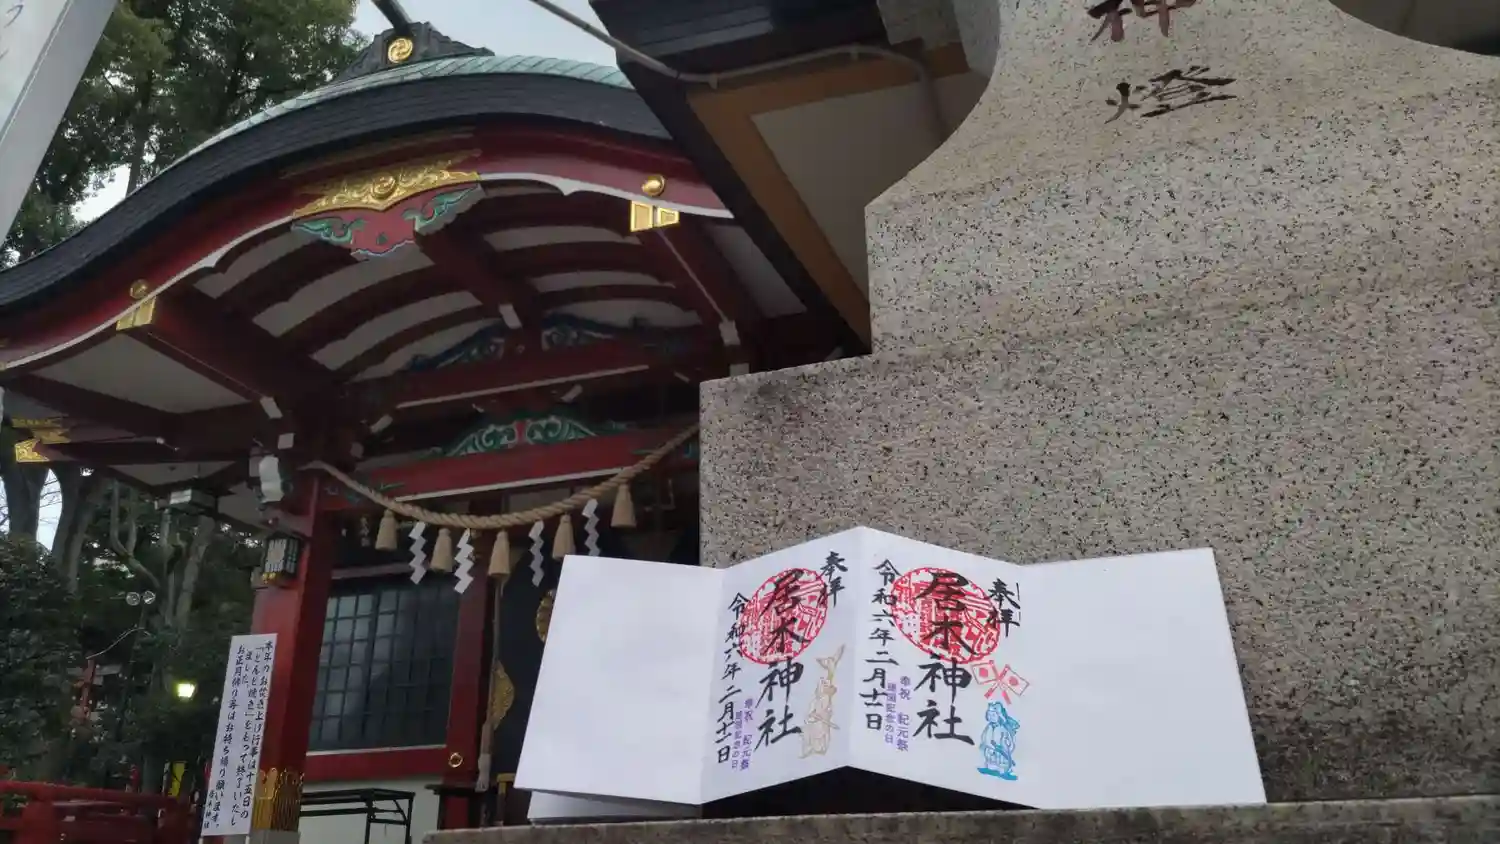 神
燈
奉拝
居木神社
令和六年二月十一日
奉祝 紀元祭
建国記念の日
奉拝
居木神社
令和六年二月十一日
奉祝 紀元祭
建国記念の日
本年のお焚き上げ行事は十五日の
「どんど焼き」をもって終了いたし
ました。
お正月飾り等はお持ち帰り願います。
居木神社